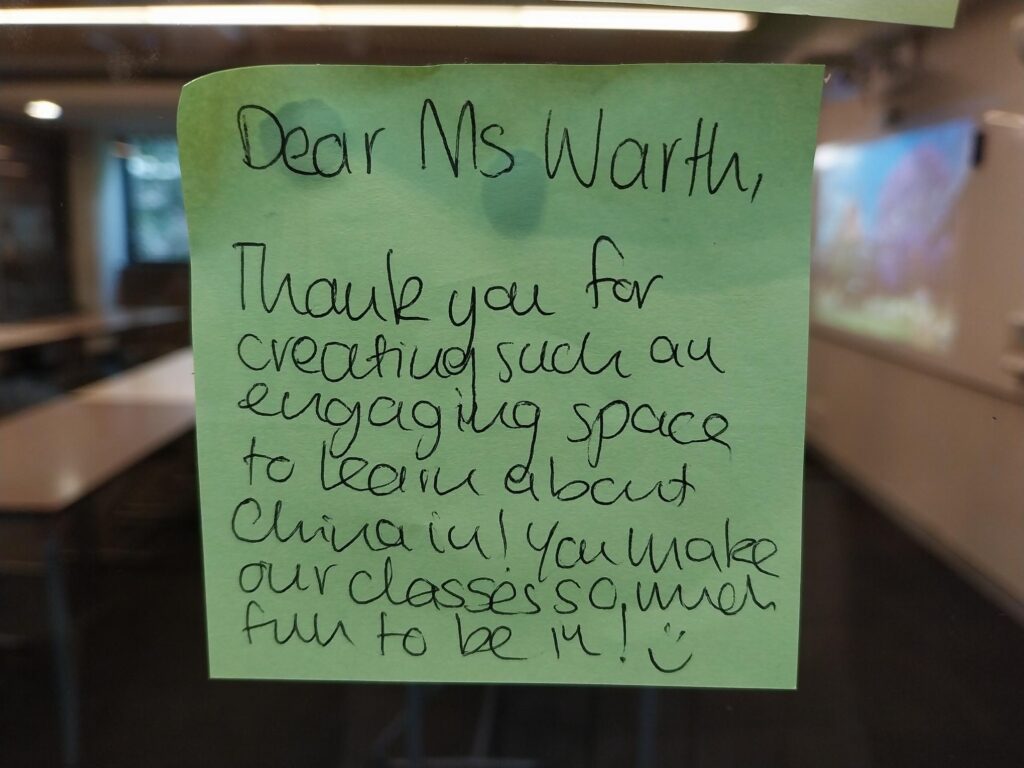 Dear Ms Warth,
Thank you for
creating such an
engaging space
to learn about
China in! You make
our classes so, much
fun to be in! :)